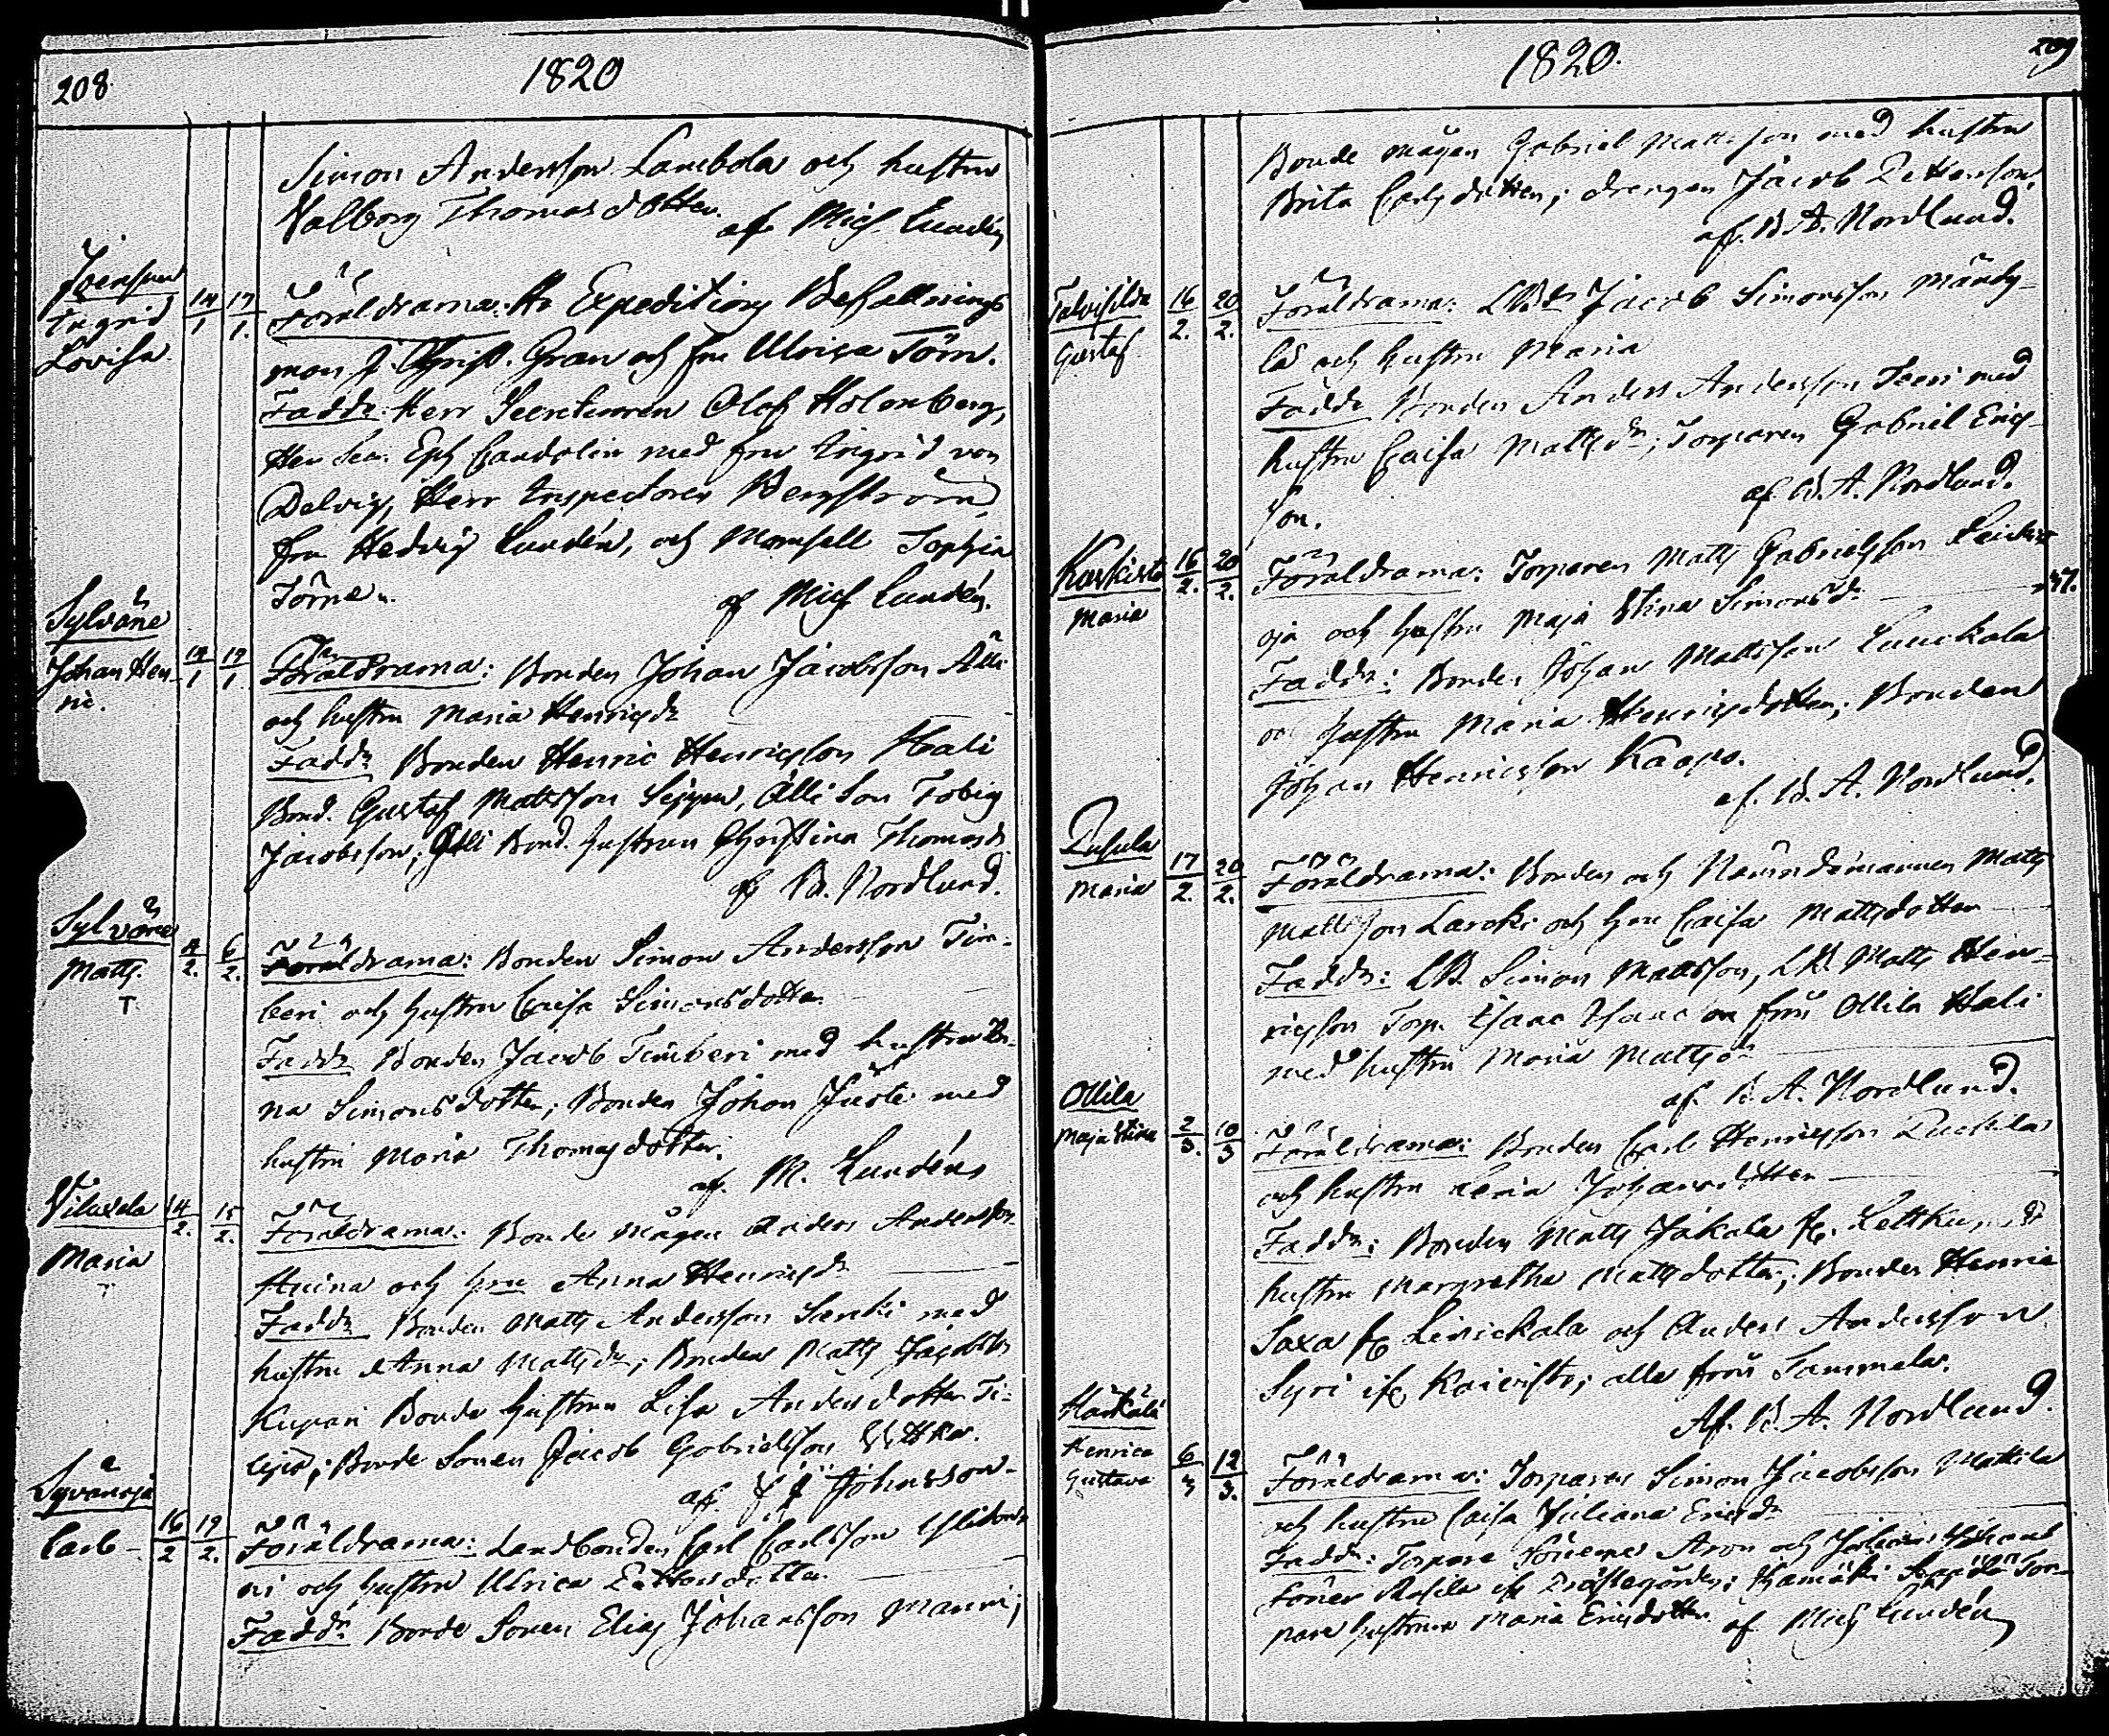 208.
1820
Simon Andersson Lambola och hustru
Valborg Thomasdotter.
af Mich Lundén
Joensuu
Ingrid
Lovisa
14/1
17/1.
Föräldrarna: Hr Expeditions Befallnings
man J. Christ. Gran och fru Ulrica Törn.
Faddr: Herr Secreteraren Olof Holmberg,
Herr Sec. Eph Candolin med fru Ingrid von
Delvig, Herr Inspectoren Bergström,
fru Hedvig Lundén, och Mamsell Sophia
Törne.
af Mich Lundén.
Sylväne
Johan Hen-
ric.
19/1
Föräldrarna: Bonden Johan Jacobsson Älli
och hustru Maria Henricsdr
Faddr Bonden Henric Henricsson Hali
Bond. Gustaf Mattsson Seppen, Älli Son Tobias
Jacobsson; Älli Bond. hustrun Christina Thomasdr
af B. Nordlund.
Sylväne
Matts.
T
4/2.
6/2.
Föräldrarna: Bonden Simon Andersson Tim-
beri och hustru Caisa Simonsdotter
Faddr Bonden Jacob Timberi med hustru
na Simonsdotter; Bonden Johan Juste med
hustru Maria Thomasdotter.
af. M. Lundén
Viluxela
Maria
T
14/2.
15/2.
Föräldrarna: Bonde mågen Anders Andersson
och hru Anna Henricsdr
Faddr Bonden Matts Andersson Sarki med
hustru Anna Mattsdr; Bonden Matts Jacobsson
Kupari Bonde hustrun Lisa Andersdotter
Bonde Sonen Jacob Gabrielsson
af J J Johnsson
Syvänoja
Carl
16/2
19/2.
Föräldrarna: Landbonden Carl Carlsson
ni och hustru Ulrica
Faddr: Bonde Sonen Elias Johansson Manni;
1820.
209
Bonde mågen Gabriel Mattsson med hustru
Brita Carlsdotter; drengen Jacob
af. B. A. Nordlund.
Talvisilda
Gustaf
16/2.
20/2.
Föräldrarna: LBdn Jacob Simonsson Mändy-
lä och hustru Maria
Faddr Bonden Anders Andersson Teeri med
hustru Caisa Mattsdr; Torparen Gabriel Erics-
son.
af. B. A. Nordlund.
Karkisto
Maria
16/2.
20/2.
Föräldrarna: Torparen Matts Gabrielsson
oja och hustru Maja Stina Simonsdr
47.
Faddr: Bonden Johan Mattsson Luuckala
och hustru Maria Henricsdotter; Bonden
Johan Henricsson Kaapo.
af. B. A. Nordlund.
Maria
17/2.
20/2.
Föräldrarna: Bonden och Nämndemannen Matts
Mattsson Laroki och hru Caisa Mattsdotter
Faddr: LB. Simon Mattsson, LB. Matts Hen-
ricsson Torp. Isaac Isaacson från Ollila Hali
med hustru Maria Mattsdr
af. B. A. Nordlund.
Ollila
Maja Stina
2/3.
10/3
Föräldrarna: Bonden Carl Henricsson
och hustru Maria Johansdotter
Faddr: Bonden Matts Jakala fr. Lettku, med
hustru Margretha Mattsdotter; Bonden Henric
Saxa fr Liesickala och Anders Andersson
Syri ifr. Kaivisto; alla från Tammela.
Af. B. A. Nordlund.
Härkälä
Henrica
Gustava
6/3
12/3.
Föräldrarna: Torparen Simon Jacobsson Mattila
och hustru Caisa Juliana Ericsdr
Faddr: Torpare Sönerne Aron och
Söner ifr Prästegården; Hamäki Tor-
pare hustrun Maria Ericsdotter
af Mich Lundén